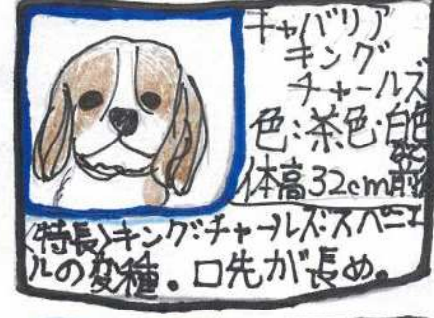 キャバリア
キング
チャールズ
色:茶色・白色
体高32cm前後
〈特長〉キング・チャールズ・スパニエ
ルの変種。口先が長め。